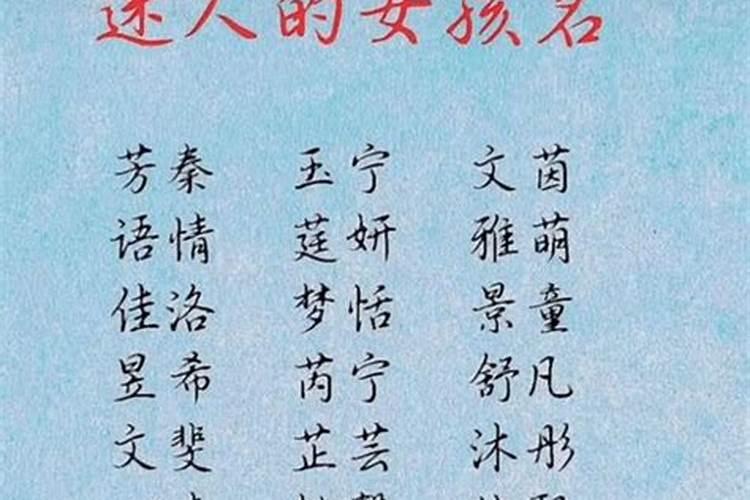 迷人的女孩名
芳秦 玉宁 文茵
语情 莛妍 雅萌
佳洛 梦恬 景童
昱希 芮宁 舒凡
文斐 芷芸 沐彤